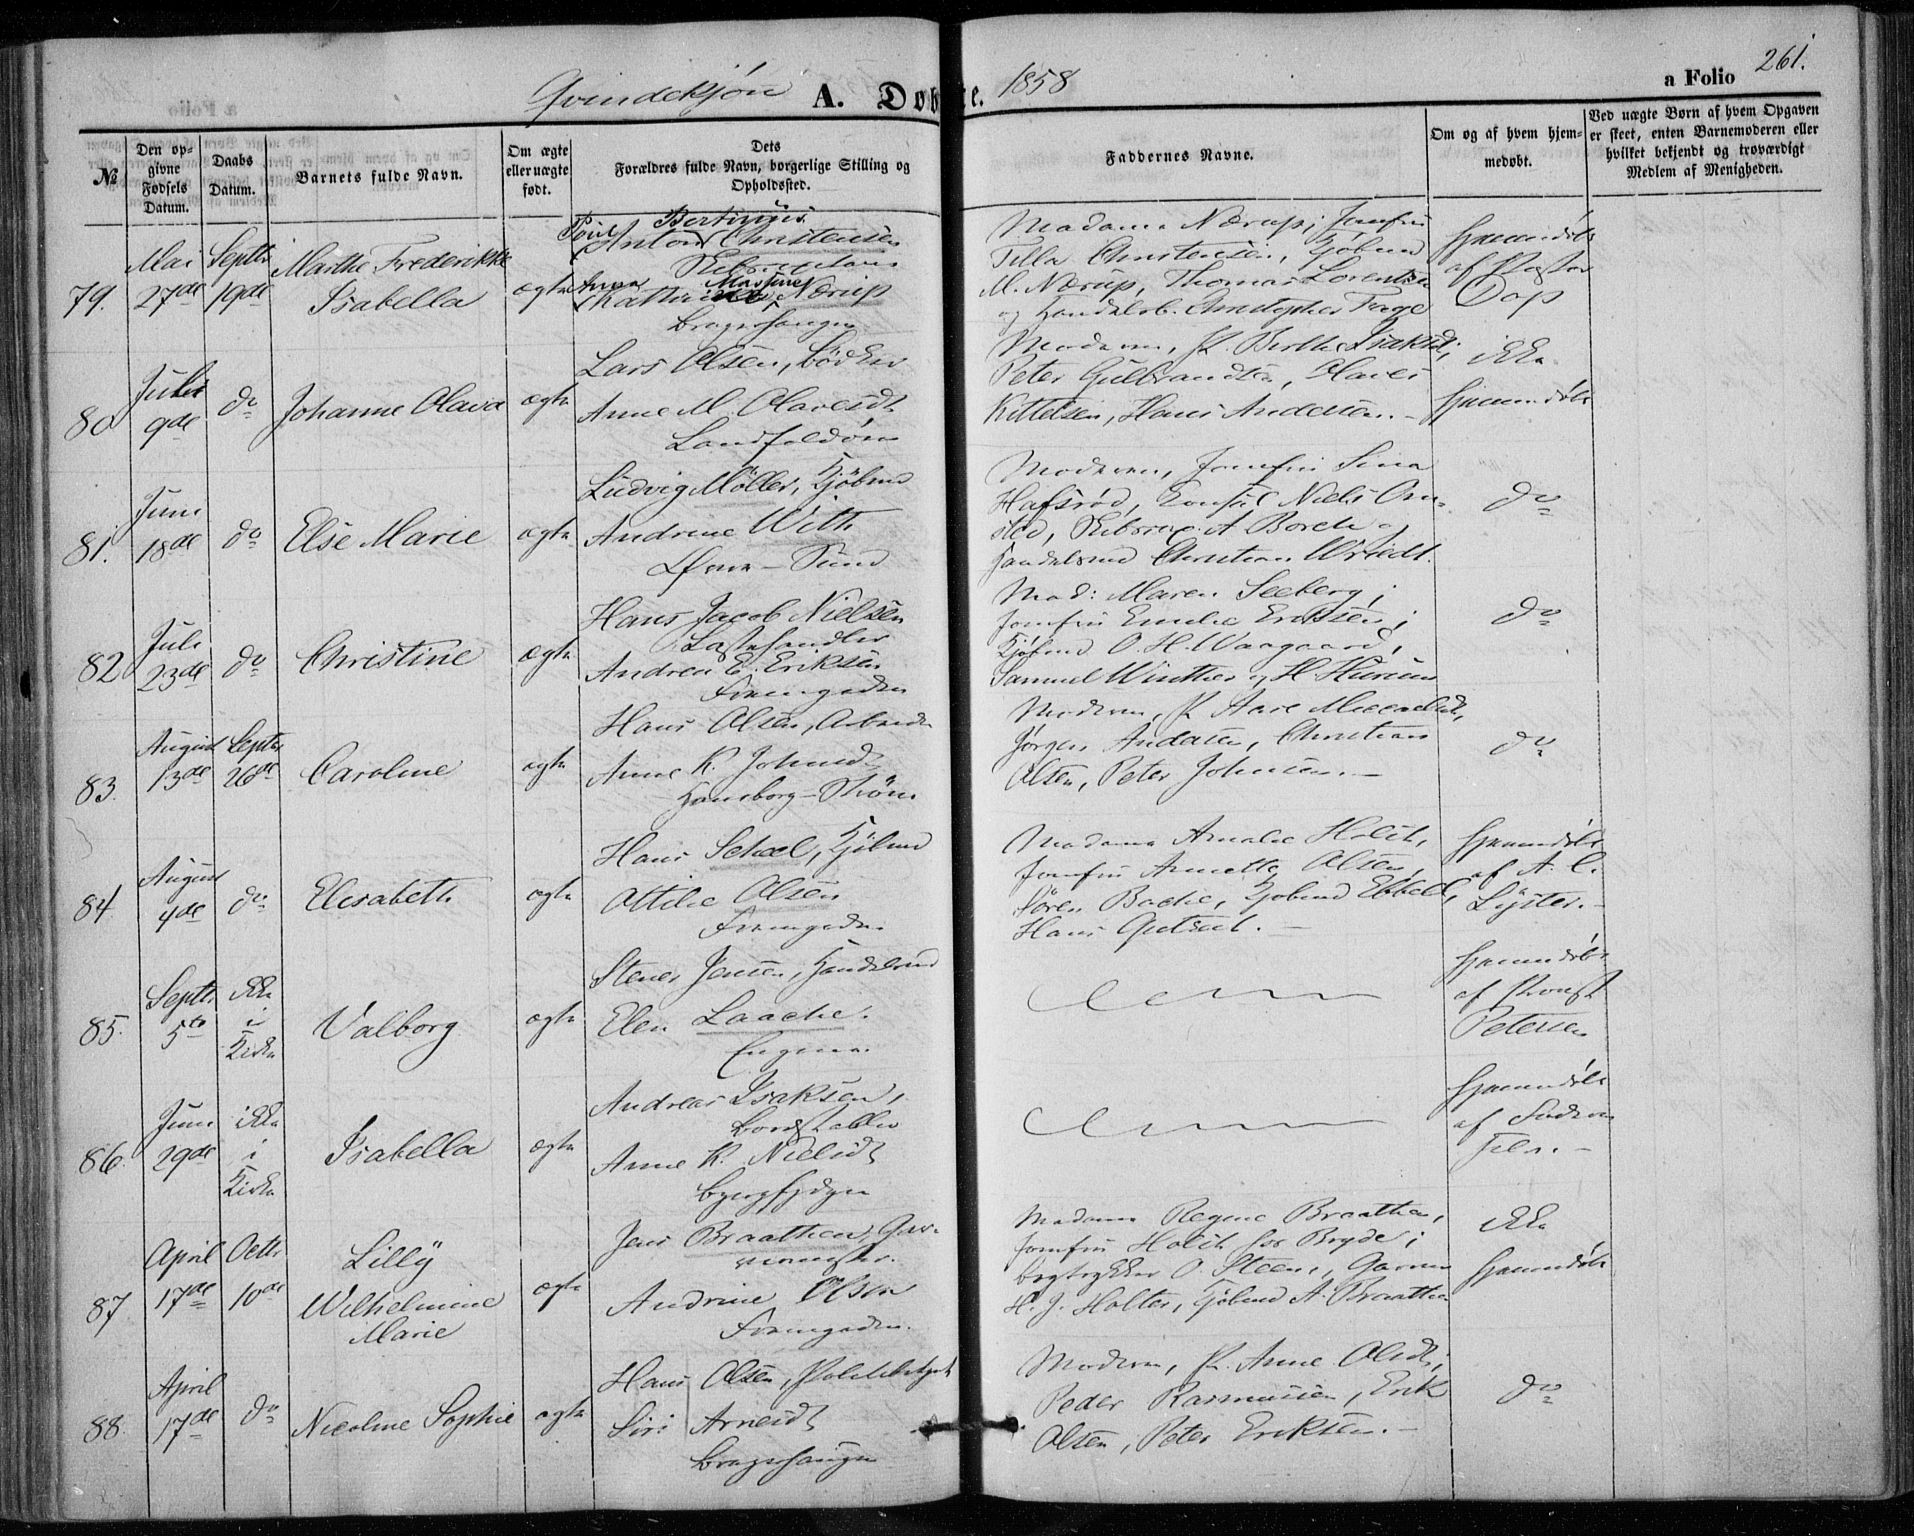 Qvindekjøn A. Døbte. 1858
a Folio 261.
№
Den opgivne Fødsels Datum.
Daabs Datum.
Barnets fulde Navn.
Om ægte eller uægte født.
Dets Forældres fulde Navn, borgerlige Stilling og Opholdssted.
Faddernes Navne.
Om og af hvem hjemmedøbt.
Ved uægte Børn af hvem Opgaven er skeet, enten Barnemoderen eller hvilket bekjendt og troværdigt Medlem af Menigheden.
79.
Mai 27de
Septbr 19de
Marthe Frederikke
Isabella
ægte
Poul Bertinius
Anton Christensen
Anna Martine
Nærup
Madame Nærup, Jomfru
Tilla Christensen, Kjøbmd
M. Nærup, Thomas Lorentzen
og Handelsb. Christopher
Hjemmedøbt
af Pastor
Dop
80
Juli 9de
do
Johanne Olava
ægte
Lars Olsen, Bødker
Anne M. Olavesdt
Landfaldøen
Moderen, P. Berthe Isaksd,
Peter Gulbrandsen, Hans
Kittelsen, Hans Andersen.-
ikke
Hjemmedøbt
81.
Juni 18de
do
Else Marie
ægte
Ludvig Møller, Kjøbmd
Andrine With
Øvre-Sund
Moderen, Jomfru Sina
Hafsrød, Konsul Niels Omsted,
A Borch og
Handelsmd Christian Wriedt.
do
82
Juli 23de
do
Christine
ægte
Hans Jacob Nielsen
Andrea E. Eriksen
Fremgaden
Mad: Maren Seeberg,
Jomfru Emilie Eriksen,
Kjøbmd O. H. Waagaard,
Samuel Winther, H. Hurum
do
83.
August 13de
Septbr 26de
Caroline
ægte
Hans Olsen, Arbeider
Anne K. Johnsd
Hamborg-Strøm
Moderen, P.
Jørgen Andersen, Christian
Olsen, Peter Johnsen.-
do
84
August 4de
do
Elisabeth
ægte
Hans Schæel, Kjøbmd
Attilie Olsen
Fremgaden.
Madame Amalie Holst,
Jomfru Annette Olsen,
Søren Bache, Kjøbmd Ebbell,
Hans
Hjemmedøbt
af A. C.
Lyster.-
85.
Septbr 5te
ikke
i
Kirke
Valborg
ægte
Stener Jensen, Handelsmd
Elen Laache.
Engene.
Hjemmedøbt
af Provst
Petersen
86.
Juni 29de
ikke
i
Kirke
Isabella
ægte
Andreas Isaksen,
Bordstabler
Anne K. Nielsdt
Hjemmedøbt
af
87.
April 17de
Octbr 10de
Lilly
Wilhelmine
Marie
ægte
Jens Braathen, Garvermester.
Andrine Olsen
Fremgaden.
Madame Regine Braathen,
Jomfru Holst hos Bryde,
Bogtrykker O. Steen, Garver
H. J. Holter, Kjøbmd A. Braathen
ikke
Hjemmedøbt
88.
April 17de
do
Nicoline Sophie
ægte
Hans Olsen, Politibetjent
Siri Arnesdt
Moderen, P. Anne Olsdt,
Peder Rasmussen, Erik
Olsen, Peter Eriksen.-
do